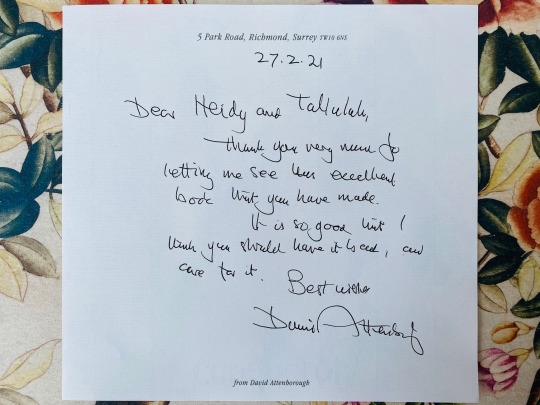 5 Park Road, Richmond, Surrey TW10 6NS
27.2.21
Dear Heidy and Tallulah,
Thank you very much for
letting me see this excellent
book that you have made.
It is so good that I
think you should have it back, and
care for it. Best wishes
David Attenborough
from David Attenborough